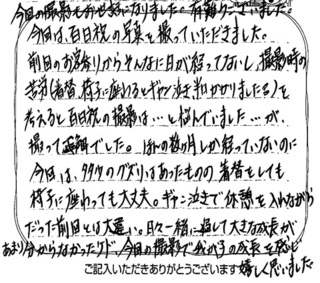 今回の撮影もお世話になりました。有難うございました。
今日は、百日祝の写真を撮っていただきました。
前回のお宮参りからそんなに日が経ってないし、撮影時の
苦労(着替、椅子に座わるとギャン泣き和かせりましたる)を
考えると百日祝の撮影は…と悩んでいました…が、
撮って正解でした。ほんの数ヶ月しか経っていないのに
今日は、タタグのグズリはあったものの着替をしても
椅子に座わっても大丈夫。ギャン泣きで休憩を入れながら
だった前回とは大違い。日々一緒に過して大きな成長が
あまり分からなかったけド、今日の撮影で我が子の成長を感じ
嬉しく思いました
ご記入いただきありがとうございます